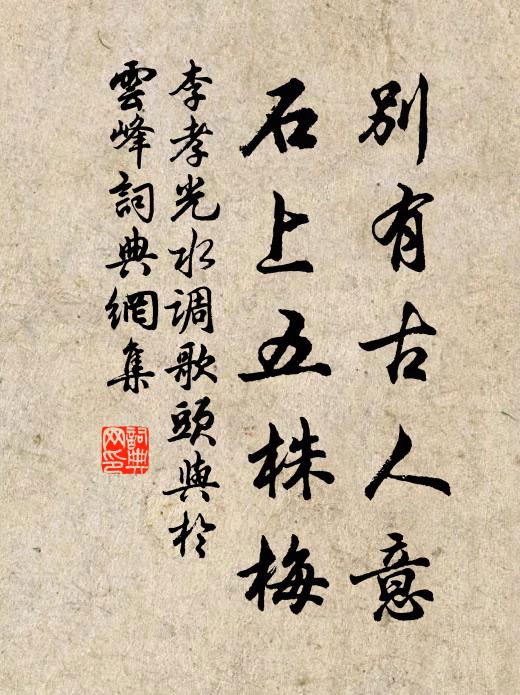 別有古人意
石上五株梅
李孝光水調歌頭與於
雲峰詞典網集
詞典网印